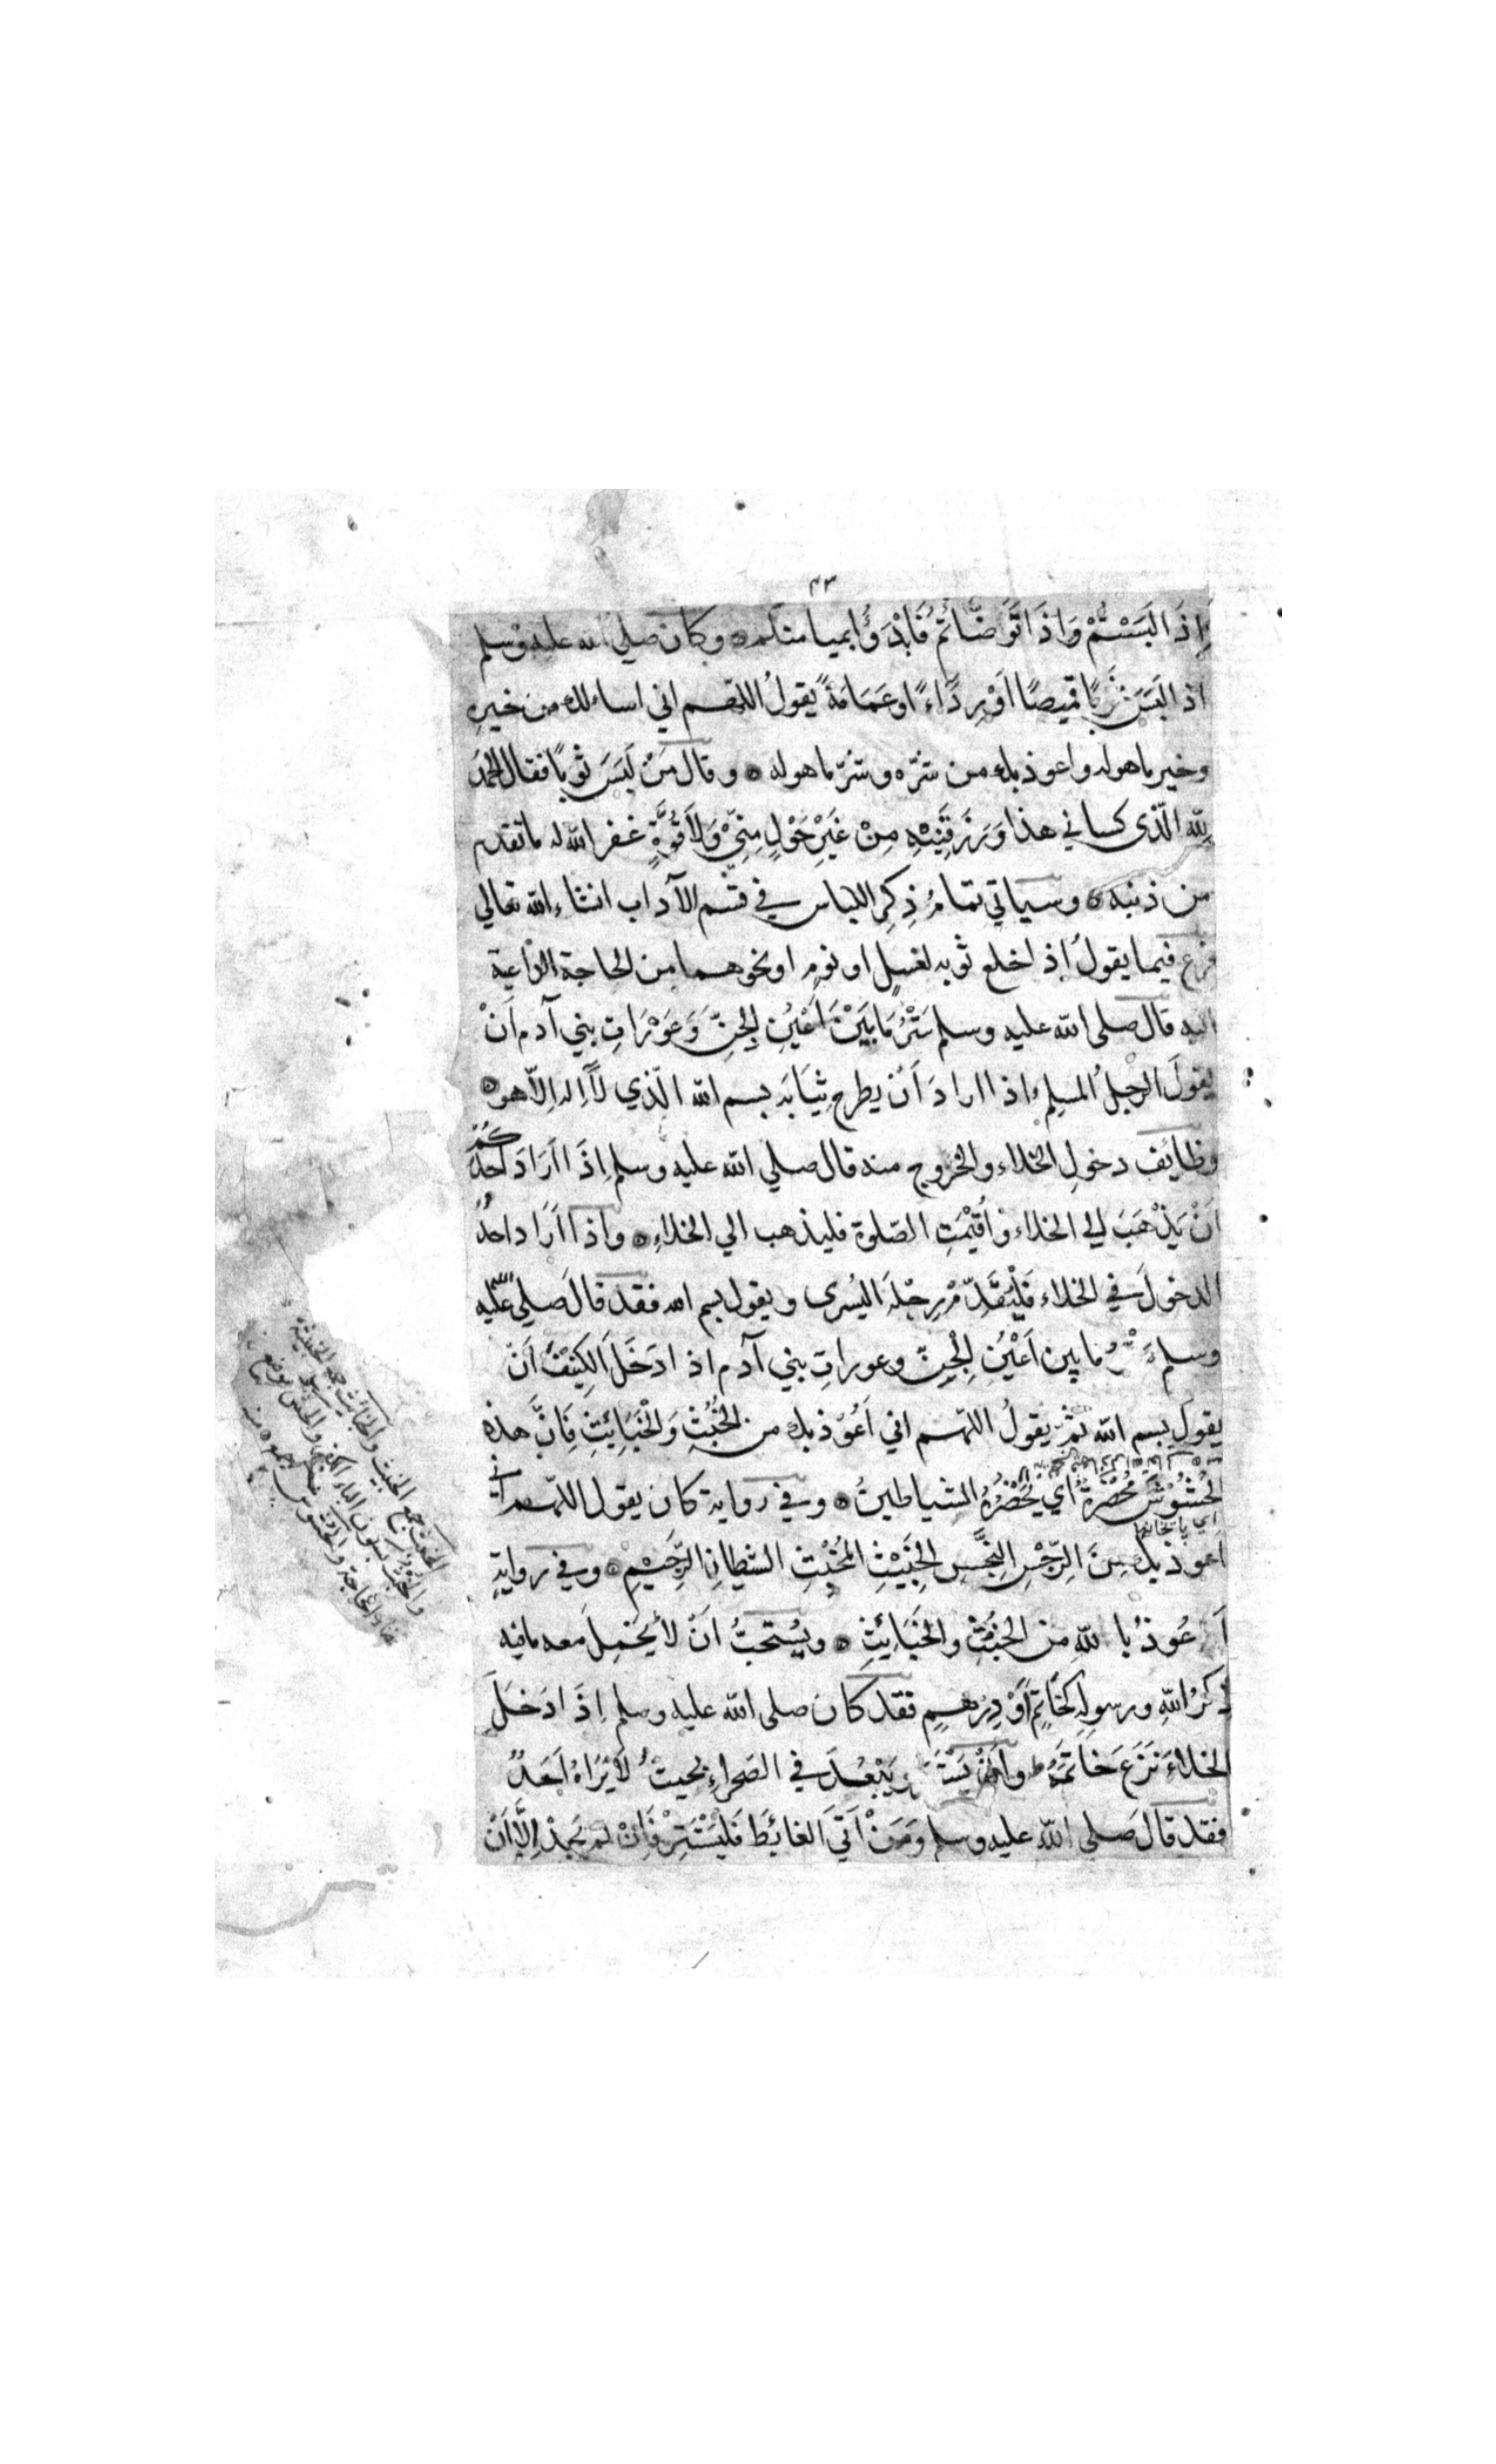 ٤٣
إِذَا لَبَسْتُمْ وَإِذَا تَوَضَّأْتُمْ فَابْدَؤُا بميامنكم ۞ وكان صلي الله عليه وسلم
اذا لَبَسَ ثَوبًا قميصًا اَوْ رِدَاءً او عَمَامَةً يقولُ اللهم اني اسالك من خيرِهِ
وخير ما هوله واعوذ بك من شرّه وشرّ ما هوله ۞ وقال مَنْ لَبِسَ ثوبًا فقال الحمد
لِلّهِ الّذى كساني هذا وَرَزَقَنِيْهِ مِنْ غَيْرِ حَوْلٍ مِنِّيْ وَلَا قُوَّةٍ غفر الله له ما تقدم
من ذنبه ۞ وسياتي تمامُ ذِكرِ اللباس في قسم الآداب انشاء الله تعالي
فرع فيما يقولُ إذا خلع ثوبه لغسلٍ او نومٍ او نحوهما مِن الحاجة الدّاعية
اليه قال صلى الله عليه وسلم سَتْرُ مَا بَيْنَ اَعْيُنِ الجِنِّ وَعَوْرَاتِ بني آدم اَنْ
يقولَ الرجلُ المسلِمُ اذا اراد اَنْ يطرح ثِيَابَه بسم الله الّذي لاَ اِله اِلاّ هو ۞
وظايف دخولِ الخلاء والخروج منه قال صلي الله عليه وسلم اِذَا اَرَادَ اَحَدُكُمْ
اَنْ يَذْهَبَ الي الخلاء واُقِيْمَتِ الصّلوة فليذهب الي الخلاءِ ۞ واذا اَرَاد احدٌ
الدخولَ في الخلاء فَلْيُقَدِّمْ رِجْلَهُ اليُسرى ويقول بسم الله فقد قالَ صلي الله عليه
وسلم ما بين اَعْيُنِ الجِنّ وعوراتِ بني آدم اذا دَخَلَ الكَنِيْفَ اَنْ
يقول بسم الله ثمّ يقولُ اللهم اني اَعُوْذ بك من الخُبُثِ وَالْخَبَائِثِ فَاِنَّ هذه
الحُشُوْشَ مُحْضَرَةٌ اي يَحْضُرُهُ الشياطينُ ۞ وفي رواية كان يقول اللهم اني
اي پاخانها
اعوذ بك مِنَ الرِّجْسِ النِّجْسِ الخَبِيْثِ المُخْبِثِ الشيطانِ الرَّجِيْمِ ۞ وفي روايةٍ
اَعُوذُ بالله من الخُبُثِ والخَبَائِثِ ۞ ويُسْتحبُّ اَنْ لاَ يَحْمِلَ معه مافيه
ذِكرُ اللهِ ورسولِه كخَاتِمٍ اَوْ دِرْهمٍ فقد كان صلى الله عليه وسلم اِذَا دَخَلَ
الخلاءَ نَزَعَ خَاتَمَهُ وانْ يَبْعُدَ في الصَحراءِ بحيثُ لاَ يَرَاهُ اَحَدٌ
فقد قال صلى الله عليه وسلم وَمَنْ اَتَي الغائِطَ فَلْيَسْتَتِرْ فَاِنْ لم يَجِدْ اِلاَّ اَنْ
الخبث جمع الخبيث والخبائث جمع الخبيثة